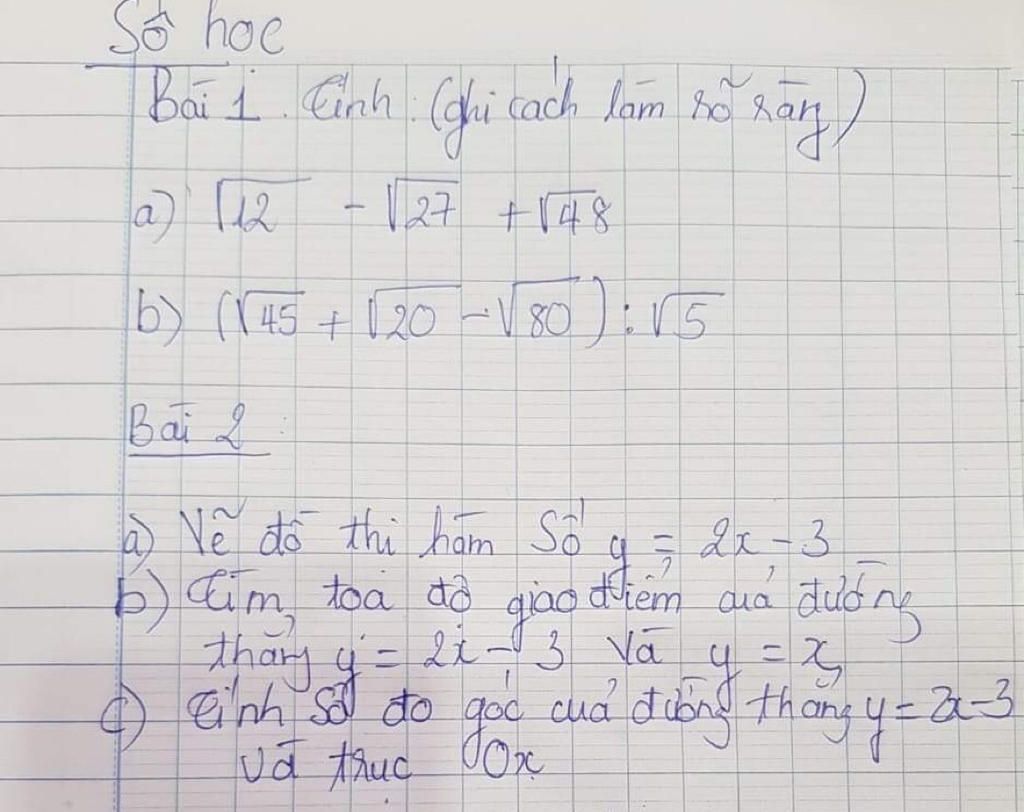 Số học
Bài 1. Tính: (ghi cách làm rõ ràng)
a) √12 - √27 + √48
b) (√45 + √20 - √80) : √5
Bài 2:
a) Vẽ đồ thị hàm số y = 2x - 3
b) Tìm toạ độ giao điểm của đường
thẳng y = 2x - 3 và y = x
c) Tính số đo góc của đường thẳng y = 2x - 3
và trục Ox